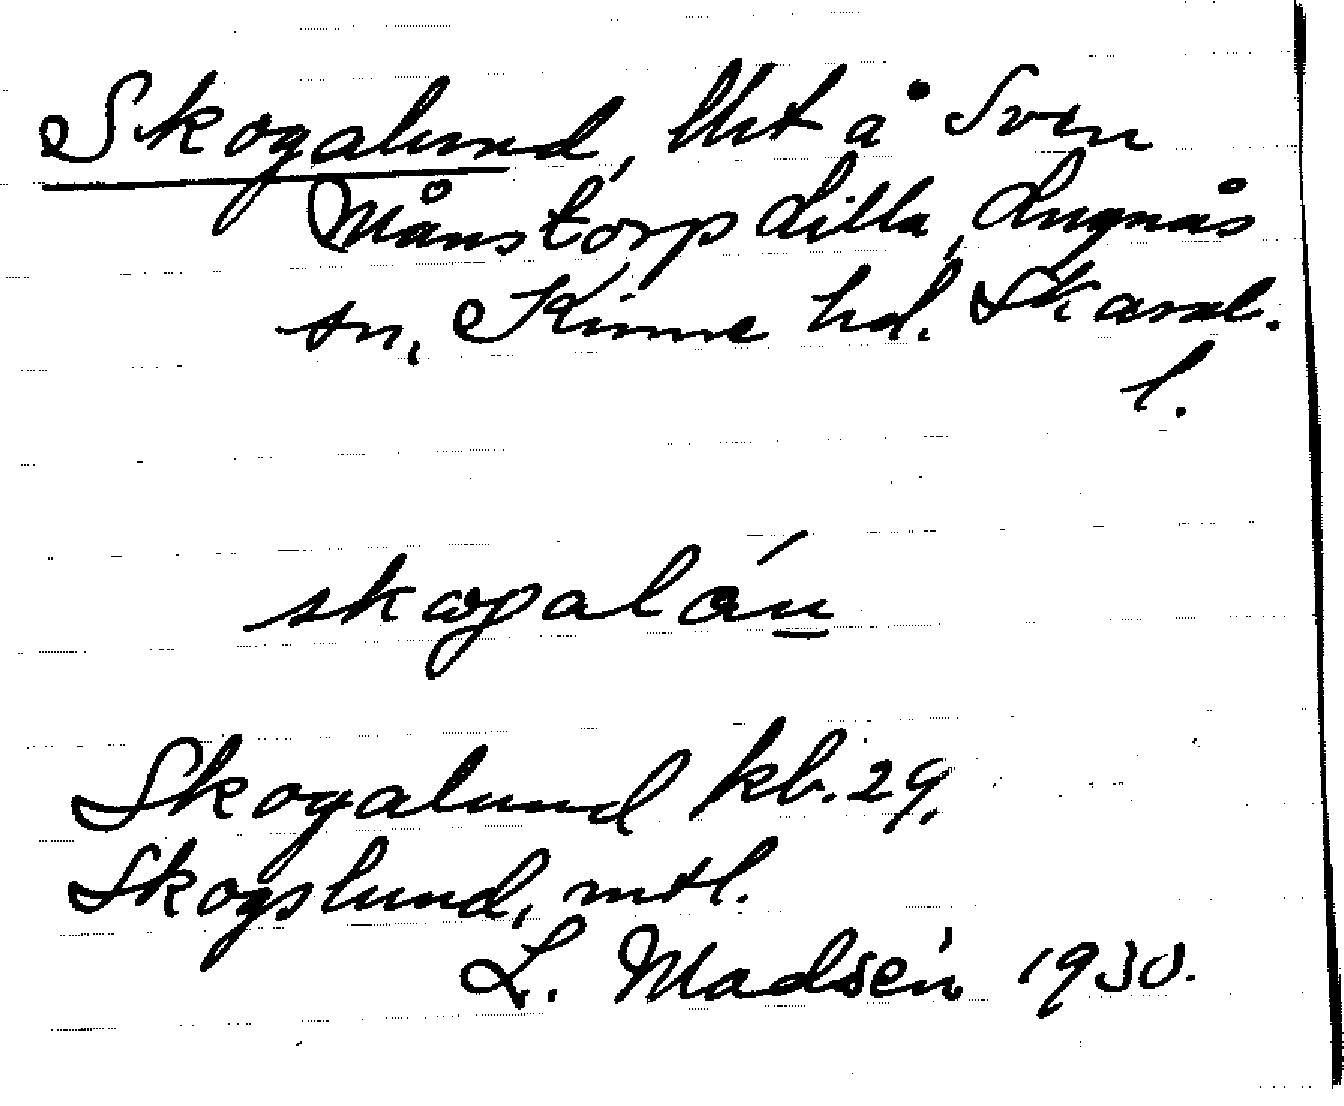 Skogalund, lht å Sven
Månstorp Lilla, Lugnås
sn, Kinne hd. Skarab.
l.
skogalún
Skogalund kb. 29.
Skogslund, mtl.
L. Madsén 1930.